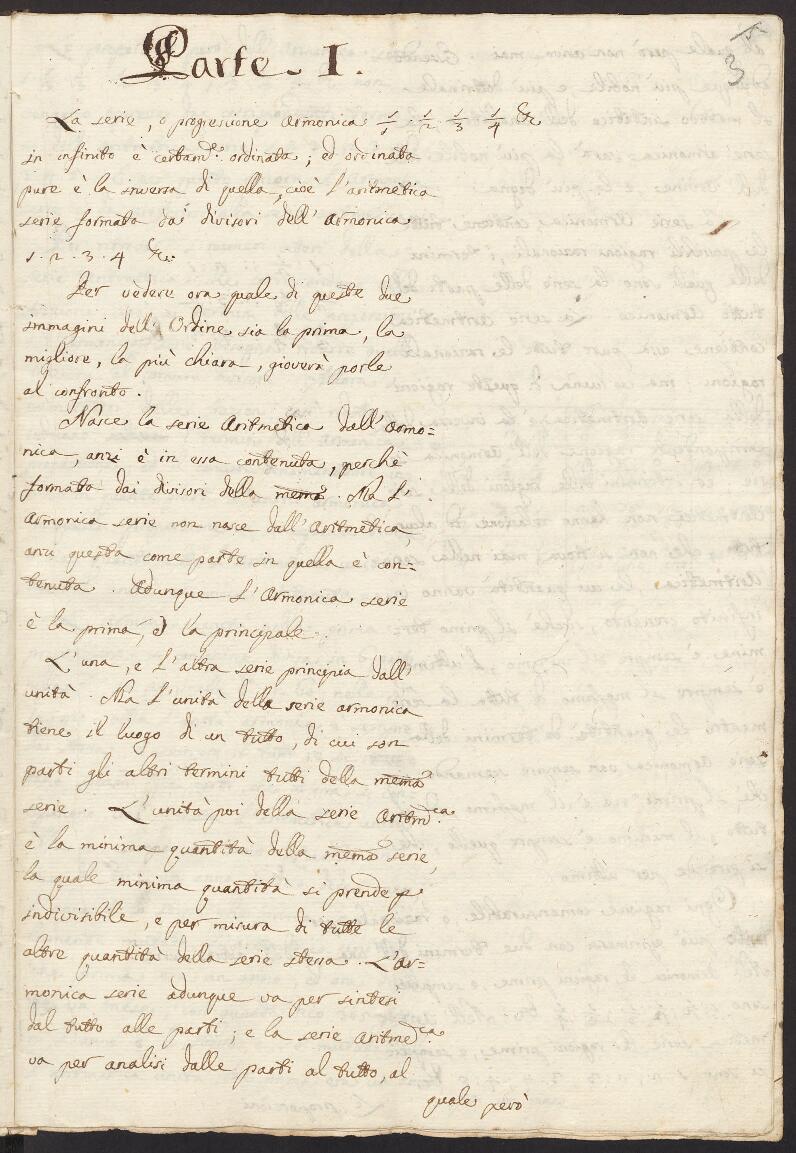 3
Parte. I.
La serie, o progressione armonica 1/1 . 1/2 . 1/3 . 1/4 &c
in infinito è certam.e ordinata; ed ordinata
pure è la inversa di quella, cioè l'aritmetica
serie formata dai divisori dell'armonica
1 . 2 . 3 . 4 &c.
Per vedere ora quale di queste due
immagini dell'Ordine sia la prima, la
migliore, la più chiara, gioverà porle
al confronto.
Nasce la serie aritmetica dall'armo=
nica, anzi è in essa contenuta, perchè
formata dai divisori della mema. Ma l'
armonica serie non nasce dall'aritmetica,
anzi questa come parte in quella è con=
tenuta. Adunque l'armonica serie
è la prima, e la principale.
L'una, e l'altra serie principia dall'
unità. Ma l'unità della serie armonica
tiene il luogo di un tutto, di cui son
parti gli altri termini tutti della mema
serie. L'unità poi della serie aritm.ca
è la minima quantità della mema serie,
la quale minima quantità si prende p
indivisibile, e per misura di tutte le
altre quantità della serie stessa. L'ar=
monica serie adunque va per sintesi
dal tutto alle parti; e la serie aritm.ca
va per analisi dalle parti al tutto, al
quale però